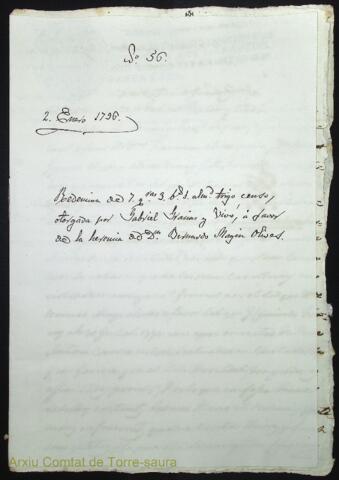 Nº 56.
2. Enero 1796.
Redemina de 7. qras 3. bs. alm. trigo censo,
otorgada por Gabriel Gracias y Vivó, á favor
de la herencia de Dn. Bernardo Magin Olives.
Arxiu Comtat de Torre-saura